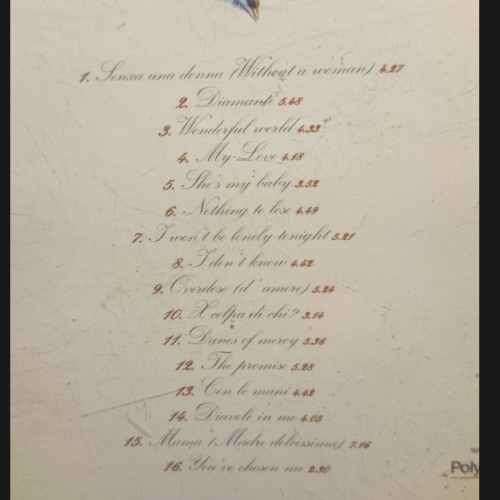 1. Senza una donna (Without a woman) 4.27
2. Diamante 5.48
3. Wonderful world 4.33
4. My Love 4.18
5. She's my baby 3.52
6. Nothing to lose 4.49
7. I won't be lonely tonight 5.21
8. I don't know 4.42
9. Overdose (d'amore) 5.24
10. X colpa di chi? 3.14
11. Dunes of mercy 5.36
12. The promise 5.28
13. Con le mani 4.42
14. Diavolo in me 4.05
15. Mama (Madre dolcissima) 7.16
16. You've chosen me 2.30
Poly